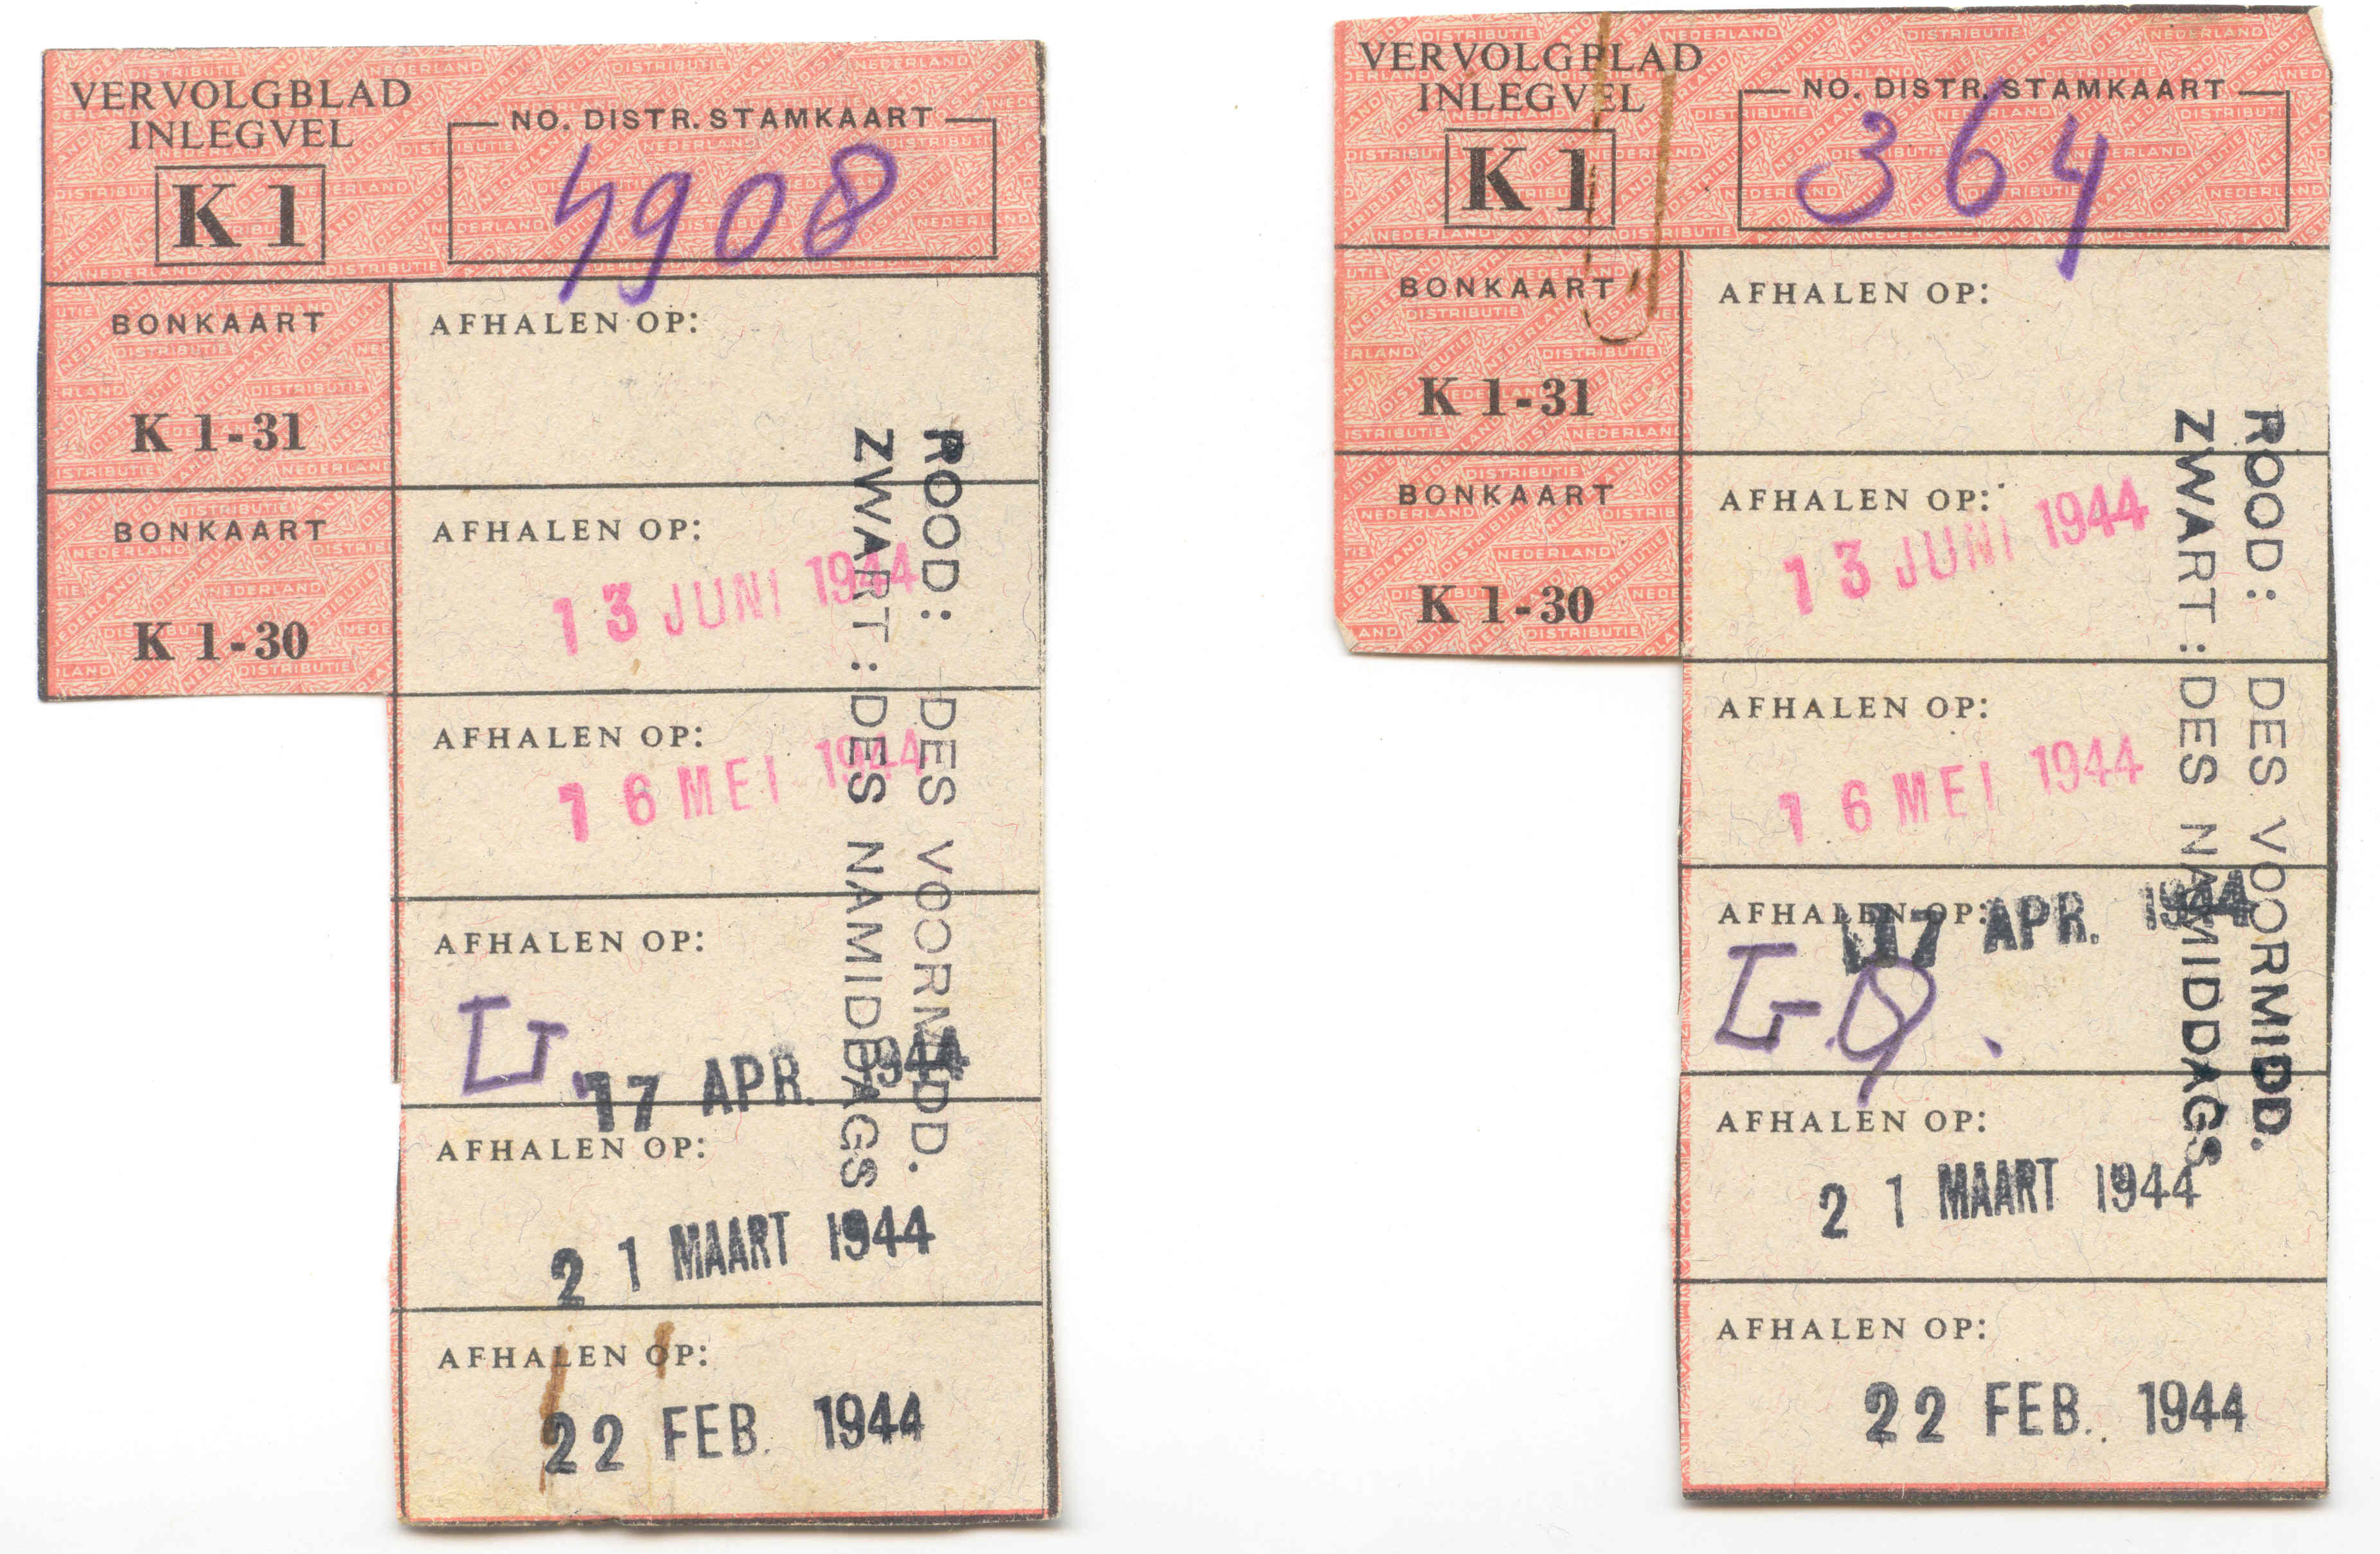 VERVOLGBLAD
INLEGVEL
K 1
NO. DISTR. STAMKAART
4908
BONKAART
K 1-31
AFHALEN OP:
BONKAART
K 1-30
AFHALEN OP:
13 JUNI 1944
AFHALEN OP:
16 MEI 1944
AFHALEN OP:
17 APR. 1944
AFHALEN OP:
21 MAART 1944
AFHALEN OP:
22 FEB. 1944
ROOD: DES VOORMIDD.
ZWART: DES NAMIDDAGS
VERVOLGBLAD
INLEGVEL
K 1
NO. DISTR. STAMKAART
364
BONKAART
K 1-31
AFHALEN OP:
BONKAART
K 1-30
AFHALEN OP:
13 JUNI 1944
AFHALEN OP:
16 MEI 1944
AFHALEN OP:
17 APR. 1944
AFHALEN OP:
21 MAART 1944
AFHALEN OP:
22 FEB. 1944
ROOD: DES VOORMIDD.
ZWART: DES NAMIDDAGS